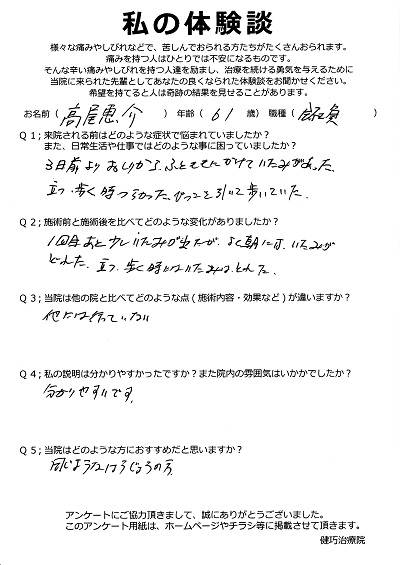 私の体験談
様々な痛みやしびれなどで、苦しんでおられる方たちがたくさんおられます。
痛みを持つ人はひとりでは不安になるものです。
そんな辛い痛みやしびれを持つ人達を励まし、治療を続ける勇気を与えるために
当院に来られた先輩としてあなたの良くなられた体験談をお聞かせください。
希望を持てると人は奇跡の結果を見せることがあります。
お名前（ 高尾恵介 ） 年齢（ 61 歳）職種（ 会社員 ）
Q１；来院される前はどのような症状で悩まれていましたか？
また、日常生活や仕事ではどのような事に困っていましたか？
3日前よりおしりからふとももにかけていたみがあった。
立つ、歩く時つらかった 引いて歩いていた。
Q２；施術前と施術後を比べてどのような変化がありましたか？
1回目あと少しいたみが出たが、よく朝には、いたみが
とれた。立つ、歩く時 いたみはとれた。
Q３；当院は他の院と比べてどのような点（施術内容・効果など）が違いますか？
他には行っていない
Q４；私の説明は分かりやすかったですか？また院内の雰囲気はいかがでしたか？
分かりやすいです。
Q５；当院はどのような方におすすめだと思いますか？
同じような の方
アンケートにご協力頂きまして、誠にありがとうございました。
このアンケート用紙は、ホームページやチラシ等に掲載させて頂きます。
健巧治療院